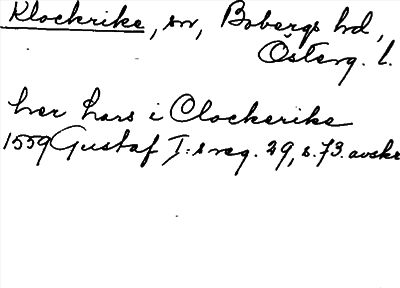 Klockrike, sn, Bobergs hd,
Österg. l.
her hans i Clockerike
1559 Gustaf I:s reg. 29, s. 73. avskr